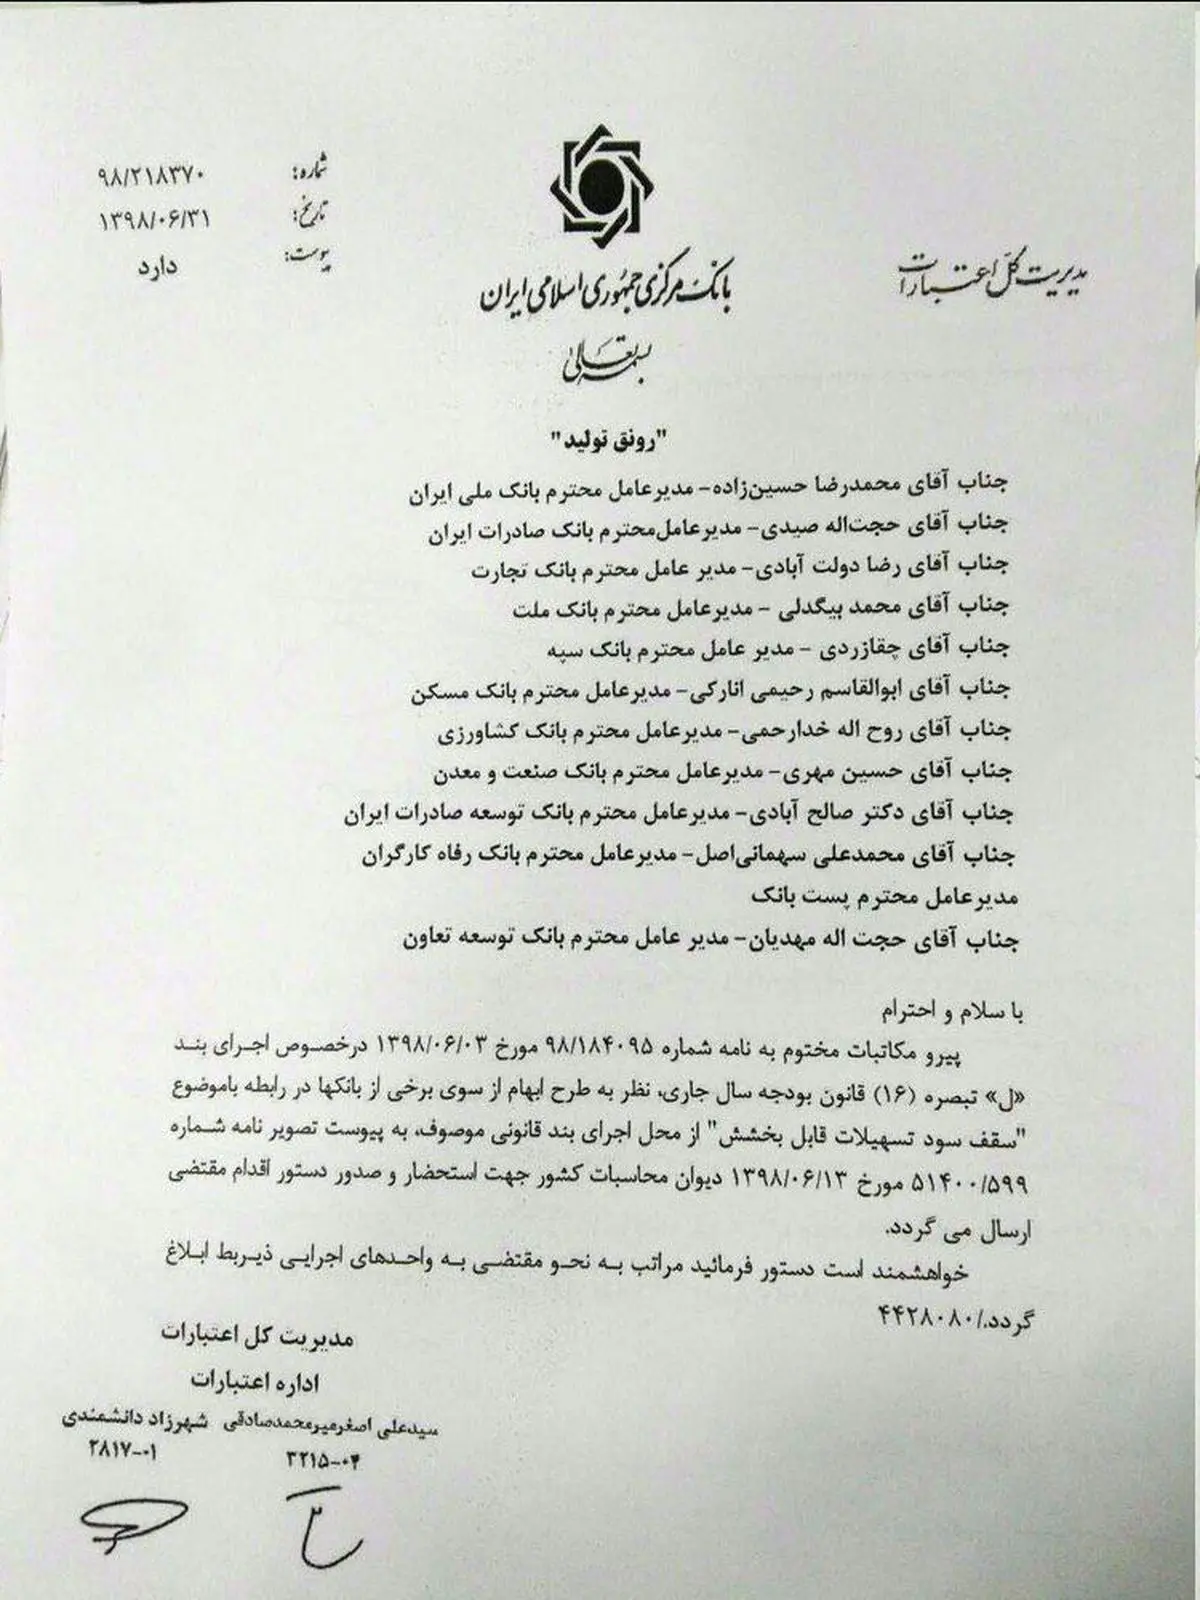 شماره: ۹۸/۲۱۸۳۷۰
تاریخ: ۱۳۹۸/۰۶/۳۱
پیوست: دارد
مدیریت کل اعتبارات
بانک مرکزی جمهوری اسلامی ایران
بسمه تعالی
"رونق تولید"
جناب آقای محمدرضا حسین‌زاده- مدیرعامل محترم بانک ملی ایران
جناب آقای حجت‌اله صیدی- مدیرعامل‌محترم بانک صادرات ایران
جناب آقای رضا دولت آبادی- مدیر عامل محترم بانک تجارت
جناب آقای محمد بیگدلی - مدیرعامل محترم بانک ملت
جناب آقای چقازردی - مدیر عامل محترم بانک سپه
جناب آقای ابوالقاسم رحیمی انارکی- مدیرعامل محترم بانک مسکن
جناب آقای روح اله خدارحمی- مدیرعامل محترم بانک کشاورزی
جناب آقای حسین مهری- مدیرعامل محترم بانک صنعت و معدن
جناب آقای دکتر صالح آبادی- مدیرعامل محترم بانک توسعه صادرات ایران
جناب آقای محمدعلی سهمانی‌اصل- مدیرعامل محترم بانک رفاه کارگران
مدیرعامل محترم پست بانک
جناب آقای حجت اله مهدیان- مدیر عامل محترم بانک توسعه تعاون
با سلام و احترام
پیرو مکاتبات مختوم به نامه شماره ۹۸/۱۸۴۰۹۵ مورخ ۱۳۹۸/۰۶/۰۳ درخصوص اجرای بند
«ل» تبصره (۱۶) قانون بودجه سال جاری، نظر به طرح ابهام از سوی برخی از بانکها در رابطه باموضوع
"سقف سود تسهیلات قابل بخشش" از محل اجرای بند قانونی موصوف، به پیوست تصویر نامه شماره
۵۱۴۰۰/۵۹۹ مورخ ۱۳۹۸/۰۶/۱۳ دیوان محاسبات کشور جهت استحضار و صدور دستور اقدام مقتضی
ارسال می گردد.
خواهشمند است دستور فرمائید مراتب به نحو مقتضی به واحدهای اجرایی ذیربط ابلاغ
گردد./۴۴۲۸۰۸۰
مدیریت کل اعتبارات
اداره اعتبارات
سیدعلی اصغرمیرمحمدصادقی شهرزاد دانشمندی
۳۲۱۵-۰۴ ۲۸۱۷-۰۱